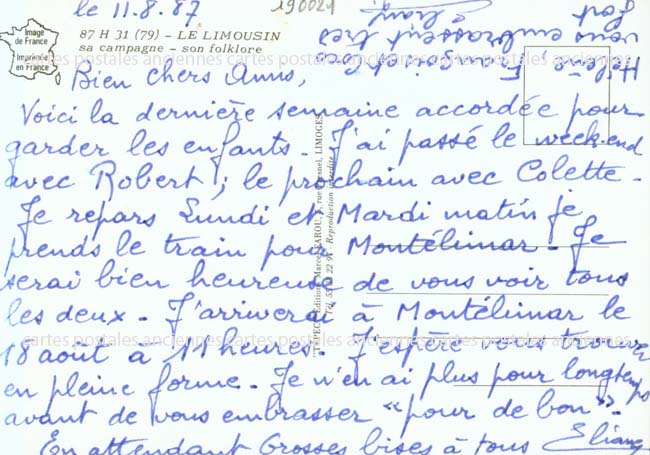 le 11.8.87
190021
Image
de France
Imprimée
en France
87 H 31 (79) - LE LIMOUSIN
sa campagne - son folklore
cartes postales anciennes cartes postales anciennes cartes postales anciennes
Bien chers Amis,
Voici la dernière semaine accordée pour
garder les enfants. J'ai passé le week-end
avec Robert ; le prochain avec Colette.
Je repars Lundi et Mardi matin je
prends le train pour Montélimar. Je
serai bien heureuse de vous voir tous
les deux. J'arriverai à Montélimar le
18 août à 11 heures. J'espère vous trouver
en pleine forme. Je n'en ai plus pour longtemps
avant de vous embrasser "pour de bon".
En attendant Grosses bises à tous Eliane
vous embrassent très
fort
LIMOGES
Reproduction interdite
cartes postales anciennes cartes postales anciennes cartes postales anciennes